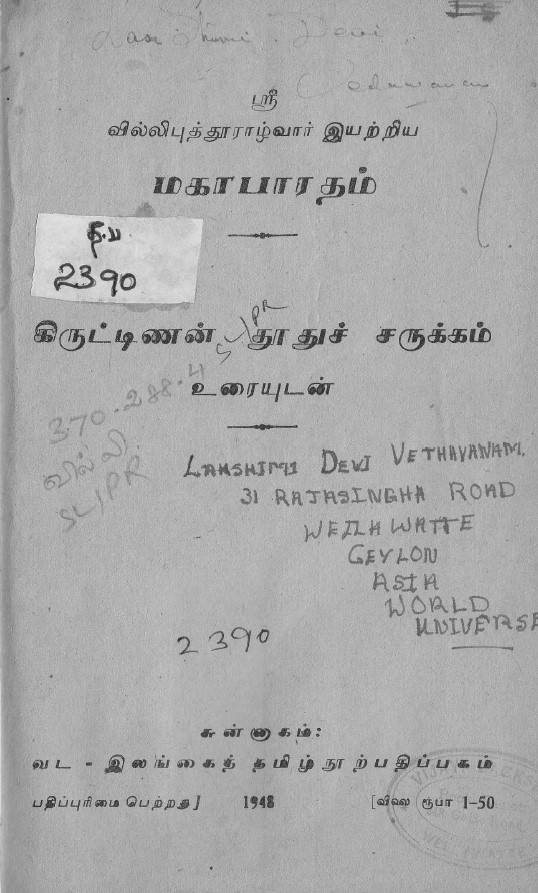 Devi
ஸ்ரீ
வில்லிபுத்தூராழ்வார் இயற்றிய
மகாபாரதம்
2390
கிருட்டிணன் தூதுச் சருக்கம்
உரையுடன்
370.288.4 SL/PR
வில்லி
SL/PR
LAKSHIMI DEVI VETHAVANAM.
31 RAJASINGHA ROAD
WELLAWATTE
CEYLON
ASIA
WORLD
UNIVERSE
2390
சுன்னாகம்:
வட - இலங்கைத் தமிழ்நூற்பதிப்பகம்
பதிப்புரிமை பெற்றது] 1948 [விலை ரூபா 1-50